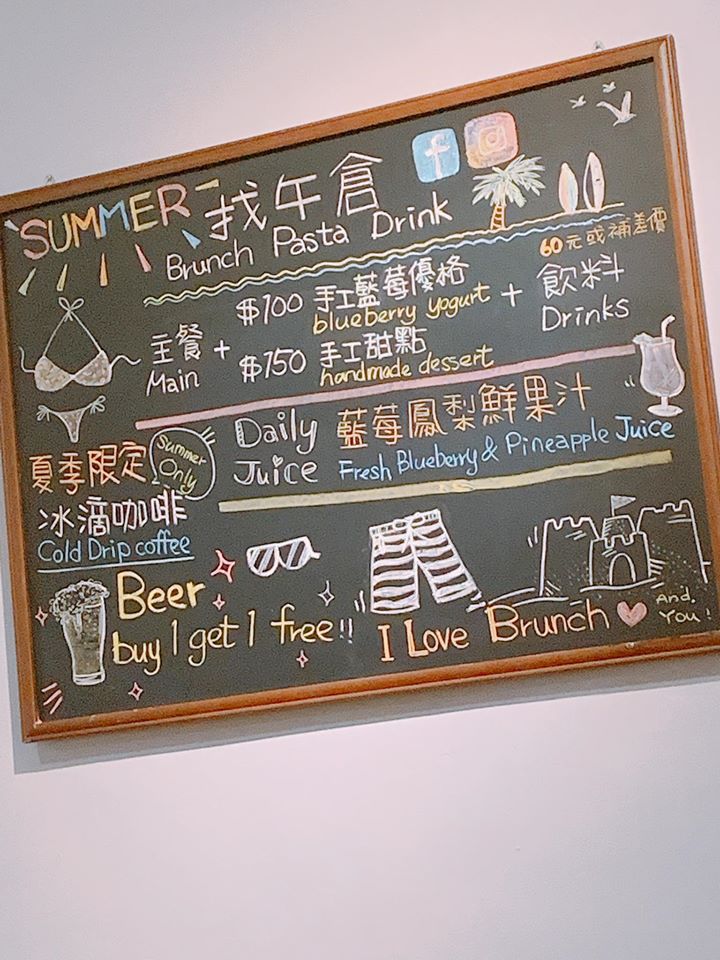 SUMMER-找午倉
Brunch Pasta Drink
60元或補差價
主餐 + $100 手工藍莓優格 + 飲料
Main blueberry yogurt Drinks
$150 手工甜點
handmade dessert
Daily Juice 藍莓鳳梨鮮果汁
Fresh Blueberry & Pineapple Juice
夏季限定 Summer Only
冰滴咖啡
Cold Drip coffee
Beer
buy 1 get 1 free!!
I Love Brunch And. You!